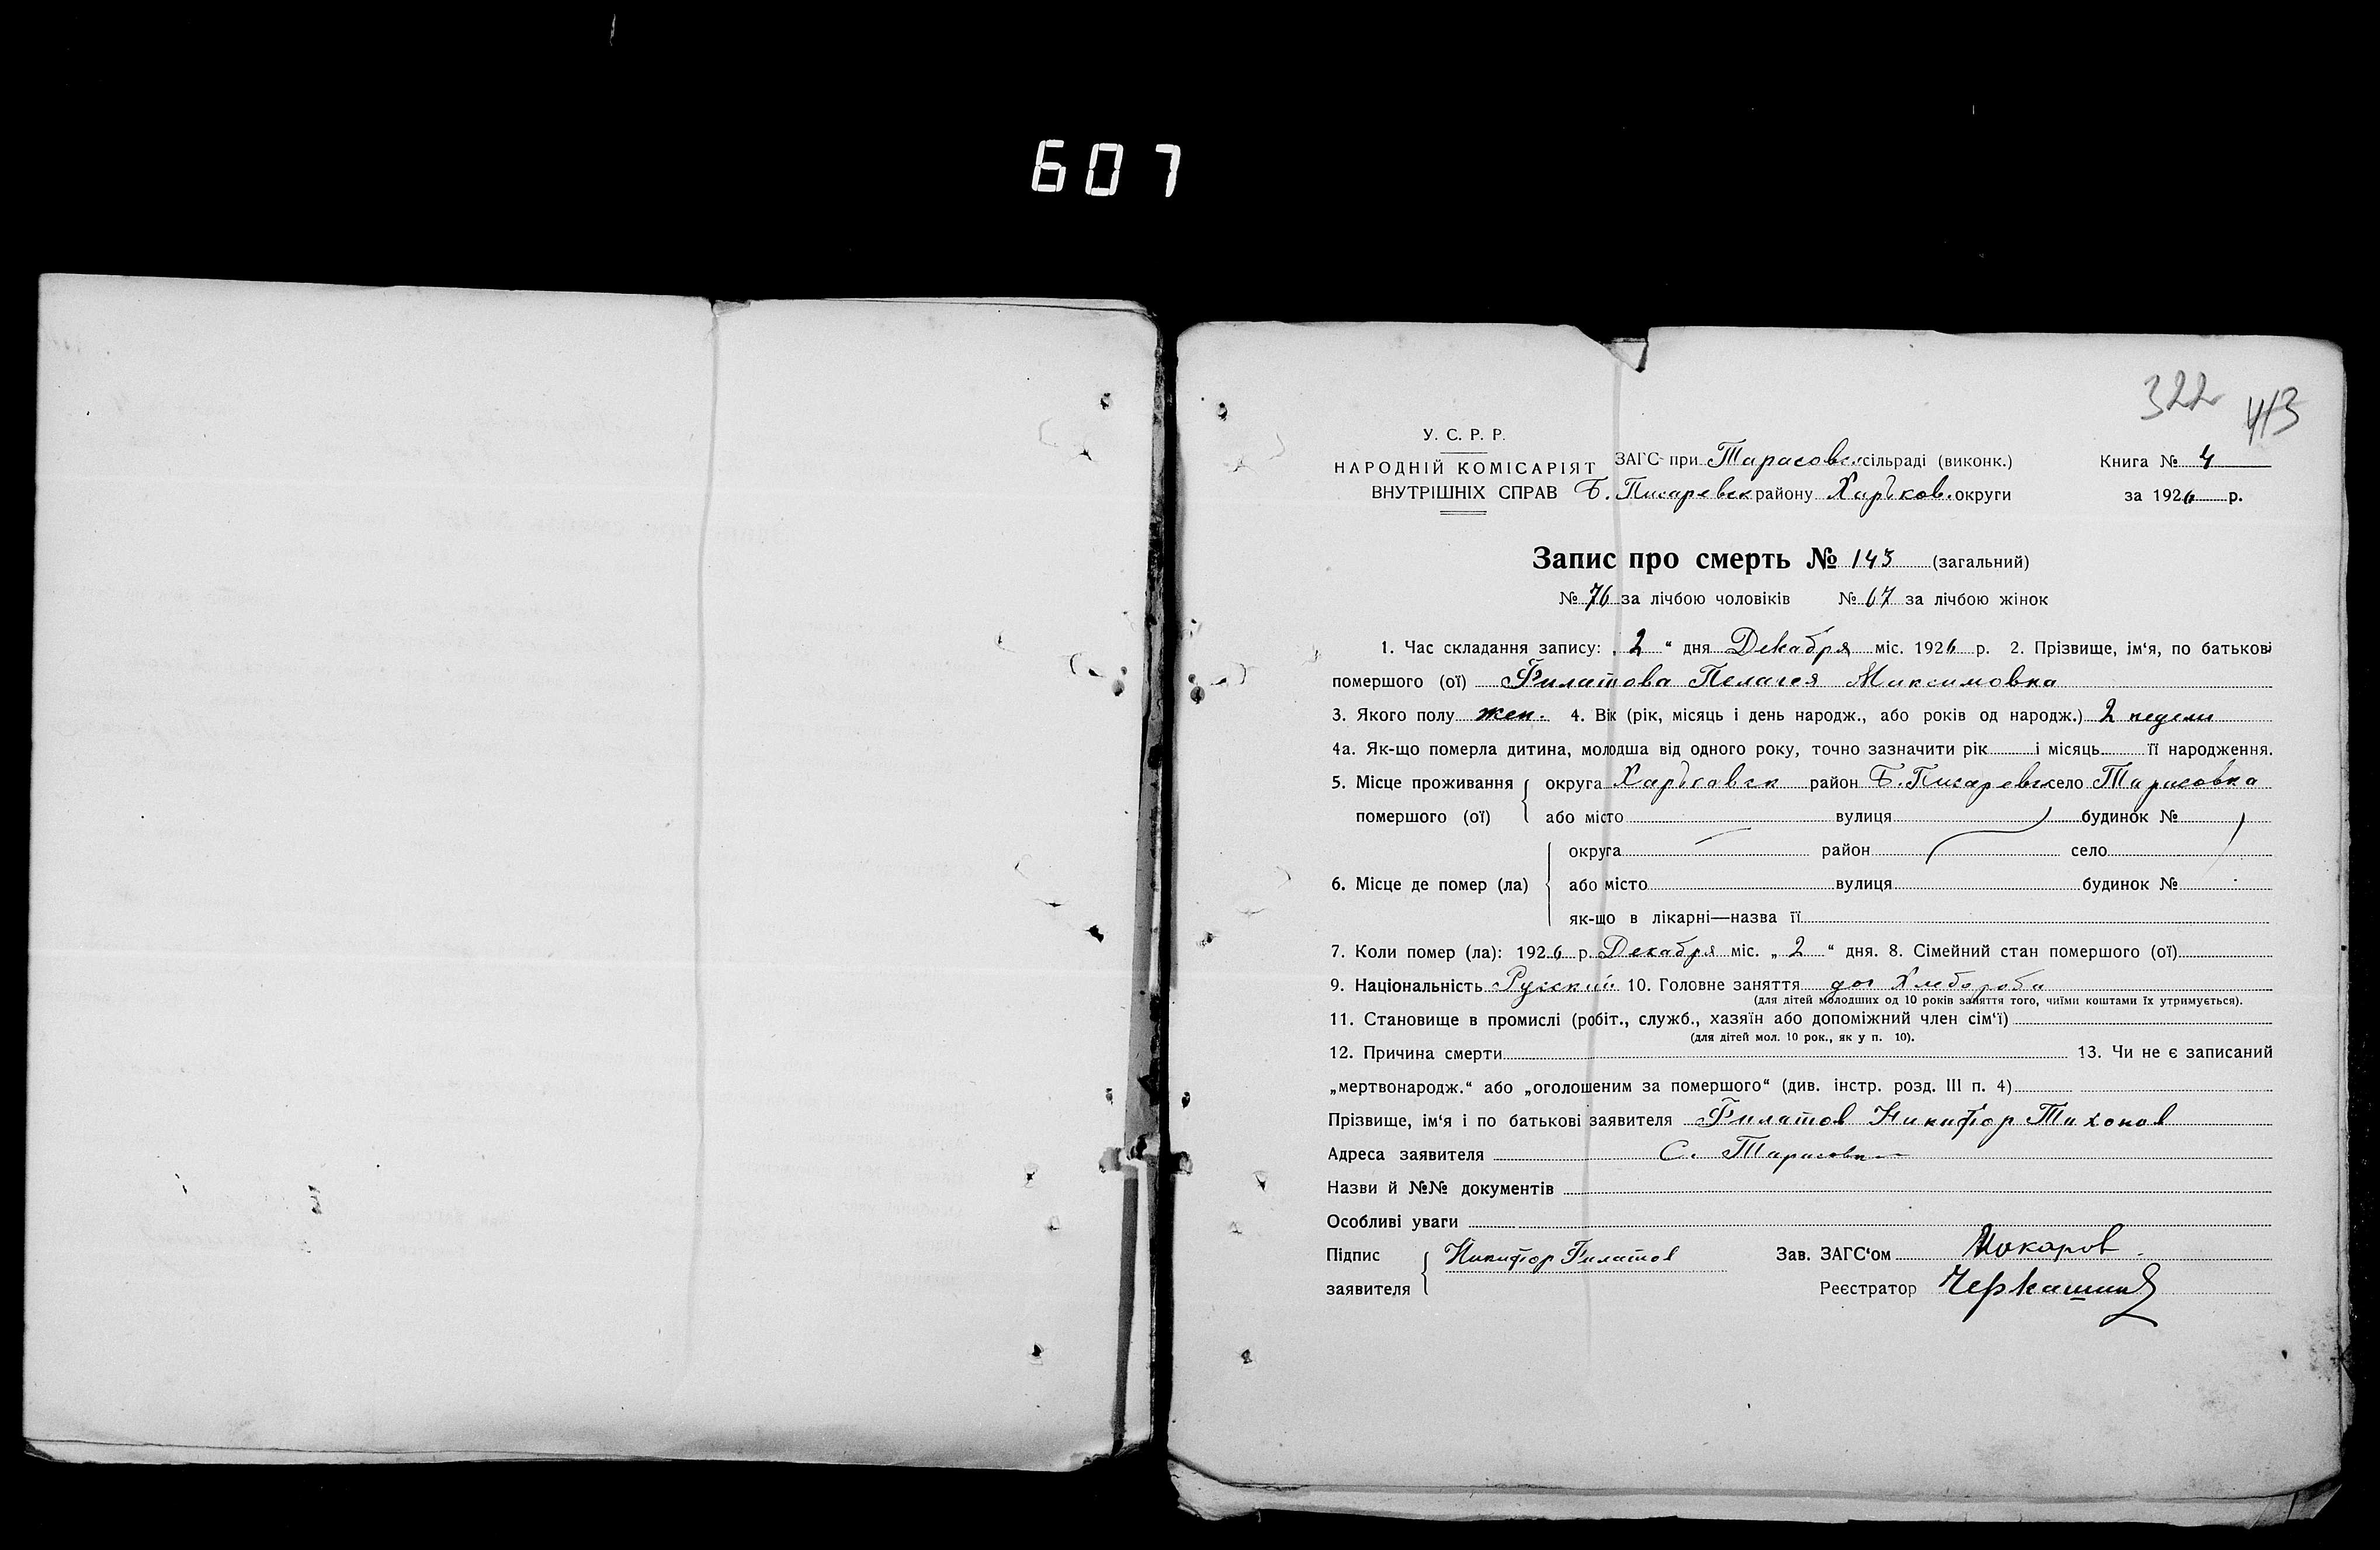 607
322 413
У. С. Р. Р.
НАРОДНІЙ КОМІСАРІЯТ
ВНУТРІШНІХ СПРАВ
ЗАГС при Тарасовс. сільраді (виконк.)
Б. Писаревск району Харьков. округи
Книга № 4
за 1926 р.
Запис про смерть № 143 (загальний)
№ 76 за лічбою чоловіків № 67 за лічбою жінок
1. Час складання запису: „ 2 “ дня Декабря міс. 1926 р. 2. Прізвище, ім‘я, по батькові
помершого (ої) Филатова Пелагея Максимовна
3. Якого полу жен. 4. Вік (рік, місяць і день народж., або років од народж.) 2 недели
4а. Як-що померла дитина, молодша від одного року, точно зазначити рік і місяць її народження.
5. Місце проживання округа Харьковск район Б. Писаревск село Тарасовка
помершого (ої) або місто вулиця будинок №
округа район село
6. Місце де помер (ла) або місто вулиця будинок №
як-що в лікарні—назва її
7. Коли помер (ла): 1926 р. Декабря міс. „ 2 “ дня. 8. Сімейний стан помершого (ої)
9. Національність Русский 10. Головне заняття доч Хлебороба
(для дітей молодших од 10 років заняття того, чиїми коштами їх утримується).
11. Становище в промислі (робіт., служб., хазяїн або допоміжний член сім‘ї)
(для дітей мол. 10 рок., як у п. 10).
12. Причина смерти 13. Чи не є записаний
„мертвонародж.“ або „оголошеним за помершого“ (див. інстр. розд. III п. 4)
Прізвище, ім‘я і по батькові заявителя Филатов Никифор Тихонов
Адреса заявителя С. Тарасовка
Назви й №№ документів
Особливі уваги
Підпис Никифор Филатов Зав. ЗАГС‘ом Мокаров
заявителя Реєстратор Черкашин